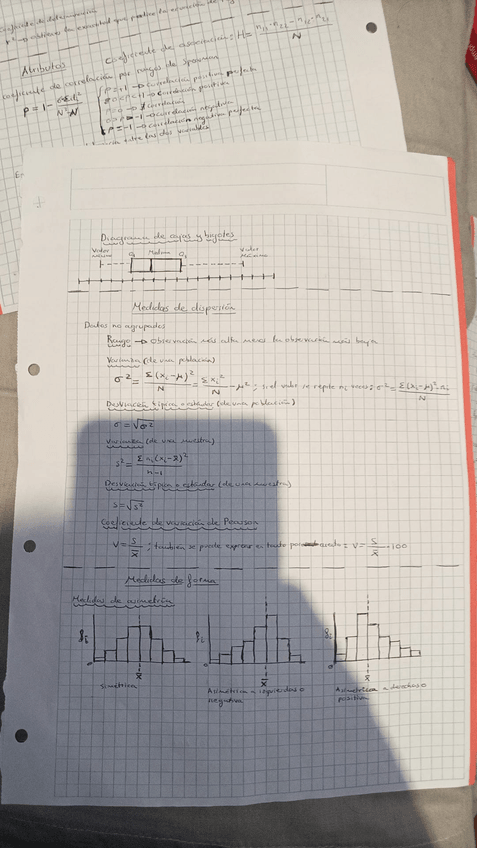 Coeficiente de determinación
Atributos
Coeficiente de asociación: H =
N
coeficiente de correlación por rangos de Spearman
ρ = 1 -
ρ = +1 → correlación positiva perfecta
correlación positiva
correlación
correlación negativa
ρ = -1 → correlación negativa perfecta
Diagrama de cajas y bigotes
Valor Mediana Valor
Q₁ Q₃ Máximo
Medidas de dispersión
Datos no agrupados
Rango → observación más alta menos la observación más baja
Varianza (de una población)
σ² = Σ(xᵢ-μ)²/N = Σxᵢ²/N - μ² ; si el valor se repite nᵢ veces; σ² = Σ(xᵢ-μ)²·nᵢ/N
Desviación típica o estándar (de una población)
σ = √σ²
Varianza (de una muestra)
s² = Σnᵢ(xᵢ-x̄)²/n-1
Desviación típica o estándar (de una muestra)
s = √s²
Coeficiente de variación de Pearson
V = S/x̄ ; también se puede expresar en tanto por : V = S/x̄ · 100
Medidas de forma
Medidas de asimetría
0 0 0
x̄ x̄ x̄
Simétrica Asimétrica a izquierdas o Asimétrica a derechas o
negativa positiva